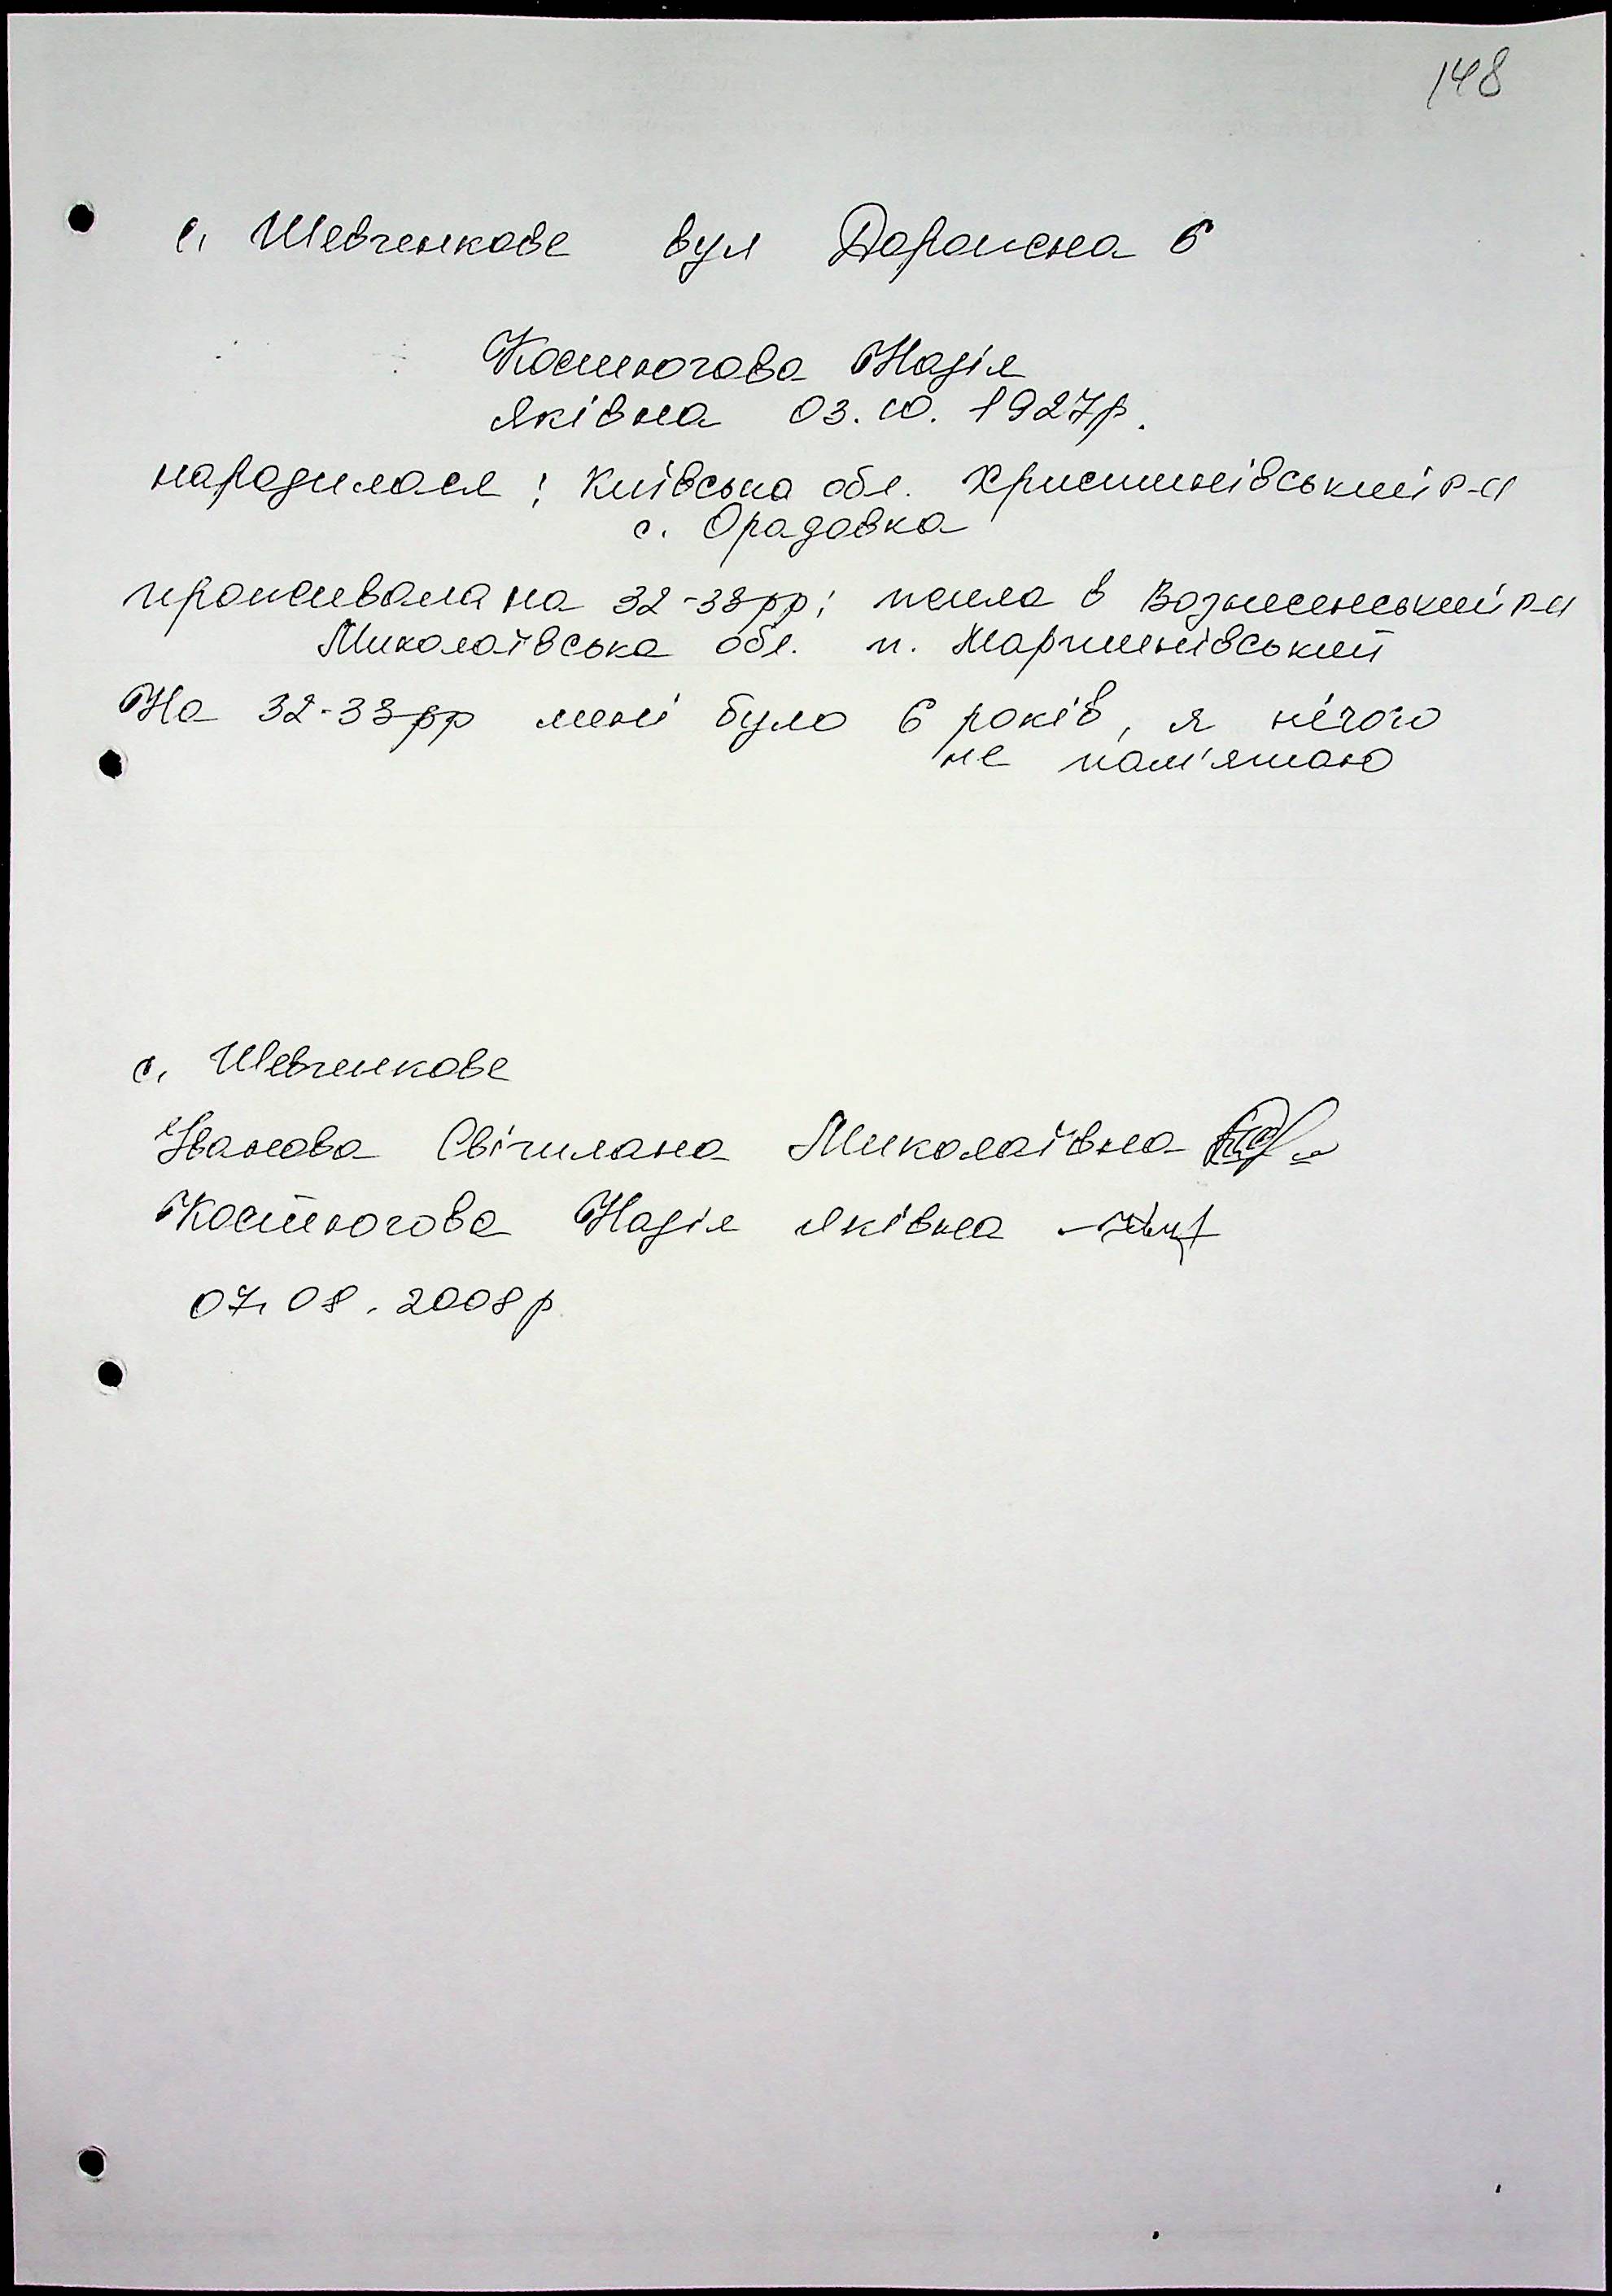 148
с. Шевченкове вул Дорожна 6
Костюгова Надія
Яківна 03.10.1927р.
народилася: Київська обл. Християнівський р-н
с. Орадовка
проживала на 32-33рр; жила в Вознесенський р-н
Миколаївська обл. п. Мартинівський
На 32-33рр мені було 6 років, я нічого
не пам'ятаю
с. Шевченкове
Іванова Світилана Миколаївна
Костюгова Надія Яківна
07.08.2008р